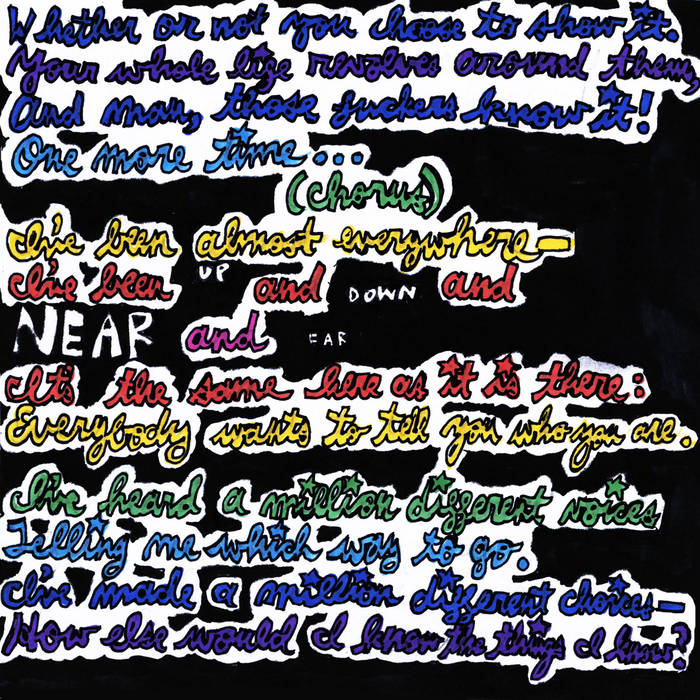 Whether or not you choose to show it.
Your whole life revolves around them,
And man, those fuckers know it!
One more time...
(chorus)
I've been almost everywhere—
I've been UP and DOWN and
NEAR and FAR
It's the same here as it is there:
Everybody wants to tell you who you are.
I've heard a million different voices
Telling me which way to go.
I've made a million different choices—
How else would I know the things I know?